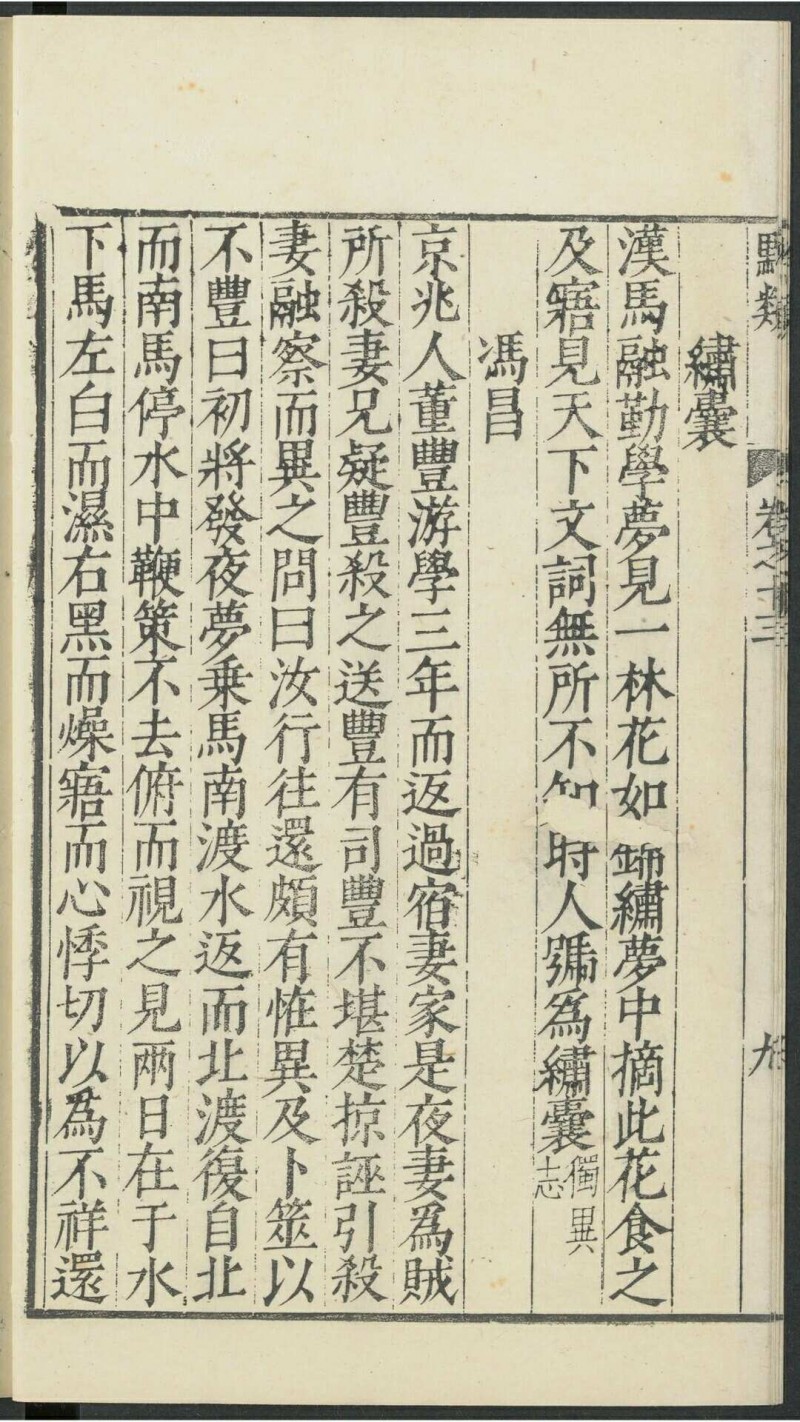 類 卷之十三 九
繡囊
漢馬融勤學夢見一林花如錦繡夢中摘此花食之
及寤見天下文詞無所不知時人號為繡囊獨異志
馮昌
京兆人董豐游學三年而返過宿妻家是夜妻為賊
所殺妻兄疑豐殺之送豐有司豐不堪楚掠誣引殺
妻融察而異之問曰汝行往還頗有恠異及卜筮以
不豐曰初將發夜夢乗馬南渡水返而北渡復自北
而南馬停水中鞭策不去俯而視之見兩日在于水
下馬左白而濕右黑而燥寤而心悸切以為不祥還